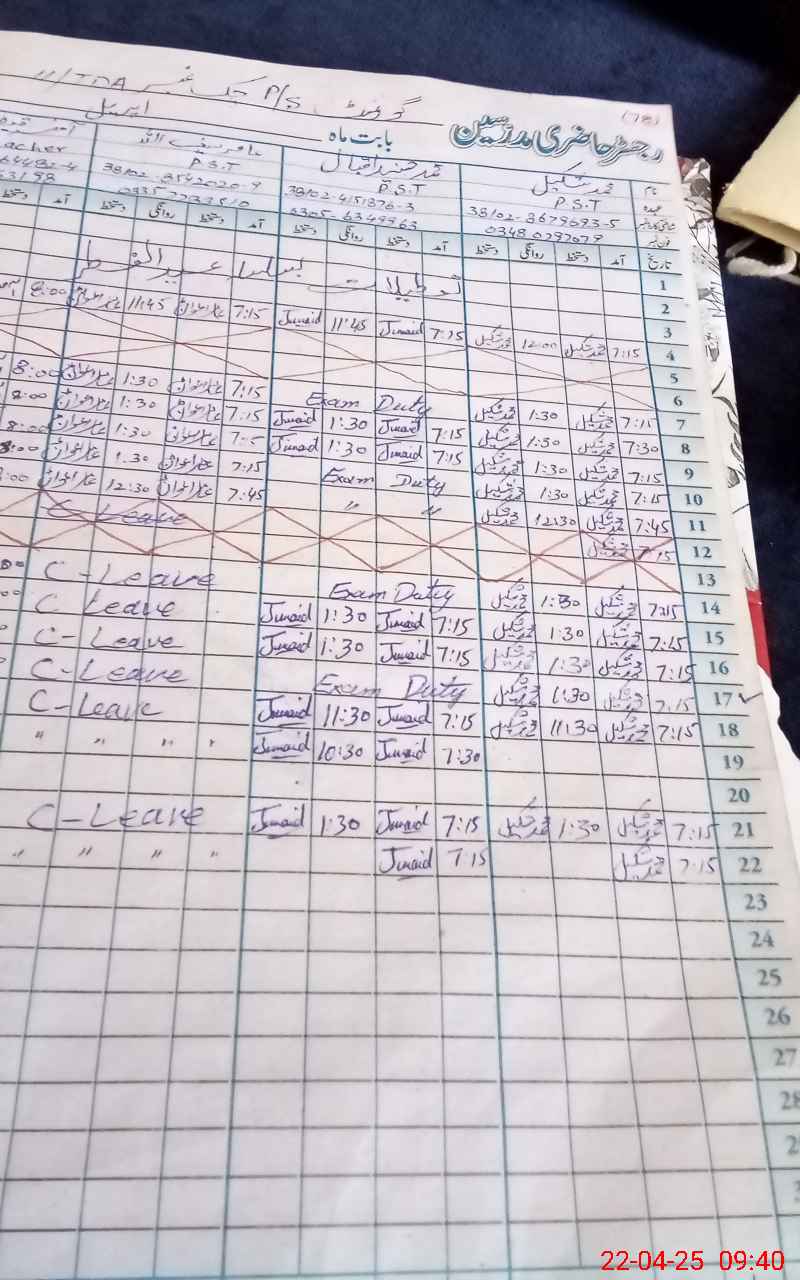 (78)
گورنمنٹ P/S چک نمبر 11/TDA
رجسٹر حاضری مدرسین بابت ماہ اپریل
نام محمد شکیل محمد جنید اقبال
عہدہ P.S.T P.S.T P.S.T acher
شناختی کارڈ نمبر 38102-8679693-5 38102-4151876-3 38102-8542020-9
فون نمبر 0348 0797079 6305-6349963
تاریخ آمد دستخط روانگی دستخط آمد دستخط روانگی دستخط آمد دستخط روانگی دستخط آمد
1
2 تعطیلات بسلسلہ عید الفطر
3
4 7:15 محمد شکیل 12:00 محمد شکیل 7:15 Junaid 11:45 Junaid 7:15 11:45 8:00
5
6
7 7:15 محمد شکیل 1:30 محمد شکیل Exam Duty 7:15 1:30 8:00
8 7:30 محمد شکیل 1:30 محمد شکیل 7:15 Junaid 1:30 Junaid 7:15 1:30 8:00
9 7:15 محمد شکیل 1:30 محمد شکیل 7:15 Junaid 1:30 Junaid 1:30 8:00
10 7:15 محمد شکیل 1:30 محمد شکیل Exam Duty 7:15 1:30 8:00
11 7:45 محمد شکیل 12:30 محمد شکیل " " 7:45 12:30
12 7:15 محمد شکیل C-Leave
13
14 7:15 محمد شکیل 1:30 محمد شکیل Exam Duty C-Leave
15 7:15 محمد شکیل 1:30 محمد شکیل 7:15 Junaid 1:30 Junaid C Leave
16 7:15 محمد شکیل 1:30 محمد شکیل 7:15 Junaid 1:30 Junaid C-Leave
17 7:15 محمد شکیل 1:30 محمد شکیل Exam Duty C-Leave
18 7:15 محمد شکیل 11:30 محمد شکیل 7:15 Junaid 11:30 Junaid C-Leave
19 7:30 Junaid 10:30 Junaid " " " "
20
21 7:15 محمد شکیل 1:30 محمد شکیل 7:15 Junaid 1:30 Junaid C-Leave
22 7:15 محمد شکیل 7:15 Junaid " " " "
23
24
25
26
27
28
22-04-25 09:40